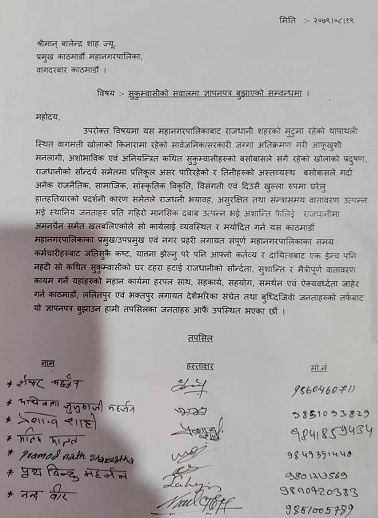 मिति :- २०७९।०८।१९
श्रीमान् बालेन्द्र शाह ज्यू,
प्रमुख काठमाडौं महानगरपालिका,
वागदरबार काठमाडौं ।
विषय :- सुकुम्वासीको सवालमा ज्ञापनपत्र बुझाएको सम्वन्धमा ।
महोदय,
उपरोक्त विषयमा यस महानगरपालिकाबाट राजधानी शहरको मुटुमा रहेको थापाथली
स्थित वागमती खोलाको किनारामा रहेको सार्वजनिक/सरकारी जग्गा अतिक्रमण गरी आफूखुशी
मनलागी, अशोभाविक एवं अनियन्त्रित कथित सुकुम्वासीहरुको बसोबासले संगै रहेको खोलाको प्रदुषण,
राजधानीको सौन्दर्य समेतमा प्रतिकूल असर पारिरहेको र तिनीहरुको अस्तव्यस्थ बसोबासले गर्दा
अनेक राजनैतिक, सामाजिक, सांस्कृतिक विकृति, विसंगती एवं दिउंसै खुल्ला रुपमा घरेलु
हातहतियारको प्रदर्शनी कारण समेतले राजधनी भयावह, असुरक्षित तथा सन्त्रासमय वातावरण उत्पन्न
भई स्थानिय जनताहरु प्रति गहिरो मानसिक दबाब उत्पन्न भई अशान्ति फैलिई राजधानीमा
अमनचैन समेत खलबलिएकोले सो कार्यलाई व्यवस्थित र मर्यादित गर्न यस काठमाडौं
महानगरपालिकाका प्रमुख/उपप्रमुख एवं नगर प्रहरी लगायत संपूर्ण महानगरपालिकाका समय
कर्मचारीहरुबाट जतिसुकै कष्ट, यातना झेल्नु परे पनि आफ्नो कर्तव्य र दायित्वबाट एक ईन्च पनि
नहटी सो कथित सुकुम्वासीको घर टहरा हटाई राजधानीको सौन्दर्यता, सुशान्ति र मैत्रीपूर्ण वातावरण
कायम गर्ने यहांहरुको महान कार्यमा हरपल साथ, सहकार्य, सहयोग, समर्थन एवं ऐक्यवर्धता जाहेर
गर्न काठमाडौं, ललितपुर एवं भक्तपुर लगायत देशैभरिका सचेत तथा बुध्दिजिवी जनताहरुको तर्फबाट
यो ज्ञापनपत्र बुझाउन हामी तपसिलका जनताहरु आफैं उपस्थित भएका छौं ।
तपसिल
नाम हस्ताक्षर मो.नं
* महर्जन 9860460711
* महर्जन 9851093829
* शाही 9841859434
* 9849391440
* pramod nath shrestha
* महर्जन 9801213569
* नन्द वीर 9890920383
9851005799